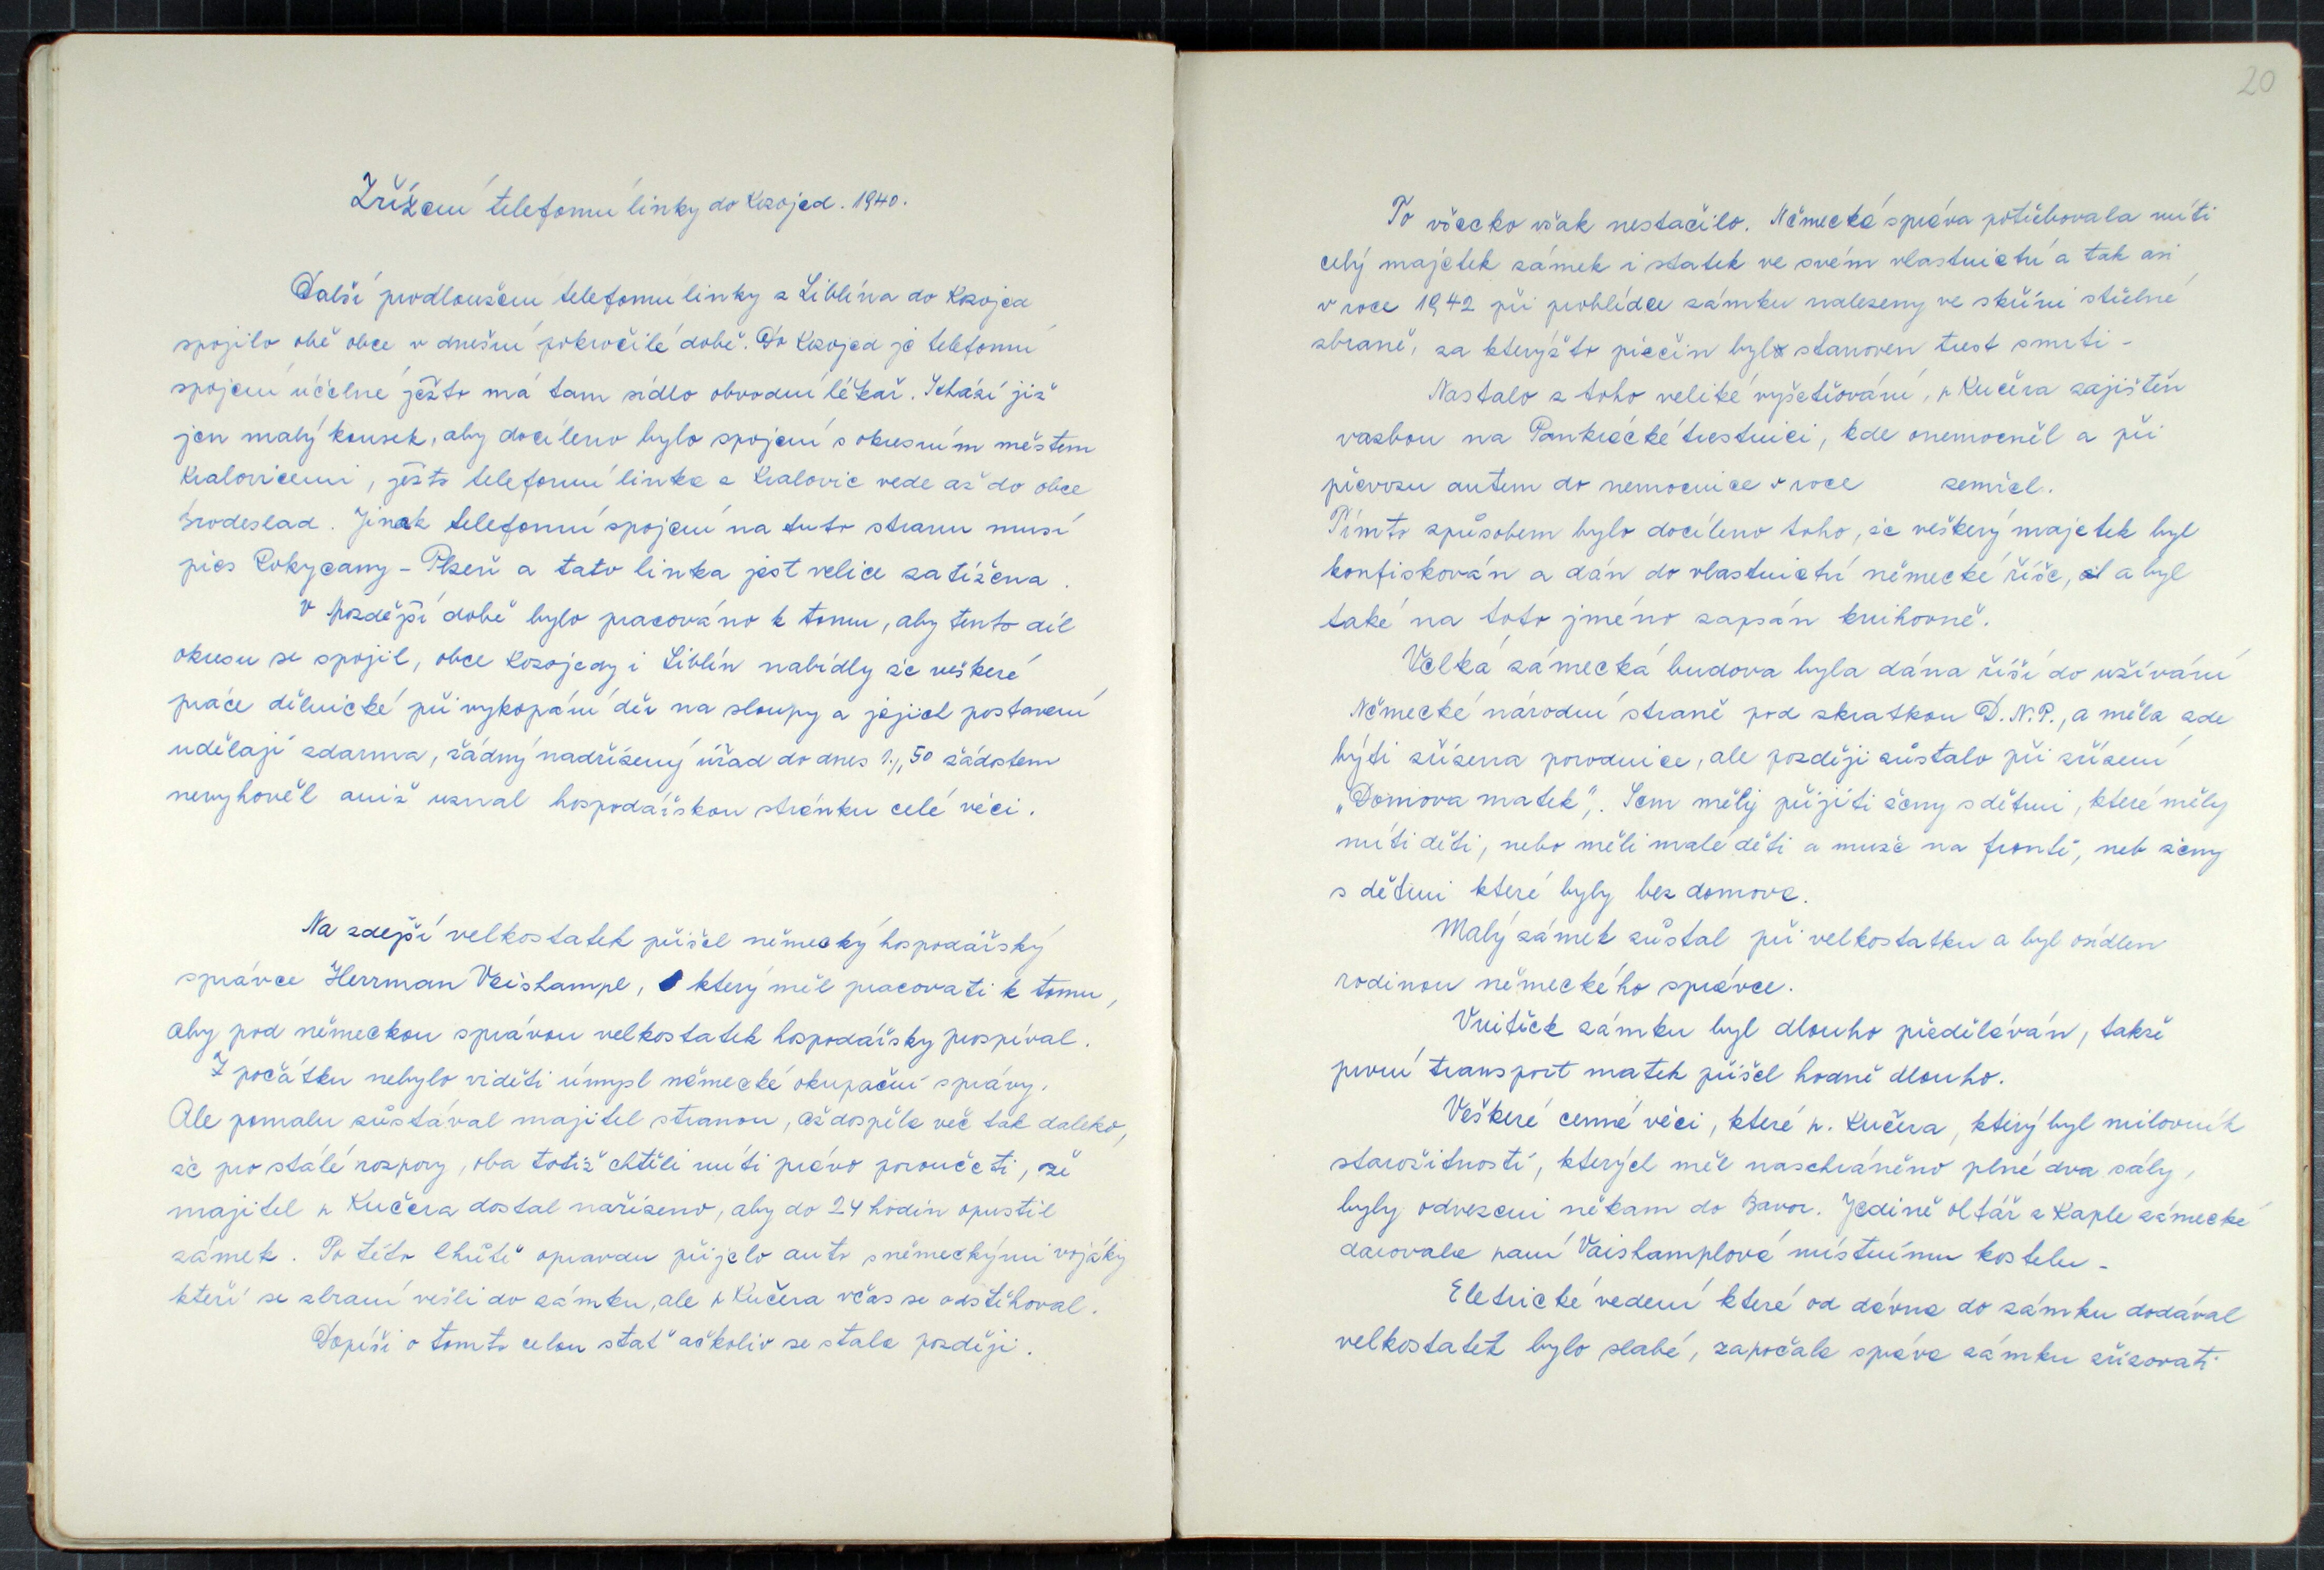 Zřízení telefonní linky do Kozojed. 1940.
Další prodloužení telefonní linky z Liblína do Kozojed
spojilo obě obce v dnešní pokročilé době. Do Kozojed je telefonní
spojení účelné ježto má tam sídlo obvodní lékař. Schází již
jen malý kousek, aby docíleno bylo spojení s okresním městem
Kralovicemi, ježto telefonní linka z Kralovic vede až do obce
Brodeslad. Jinak telefonní spojení na tuto stranu musí
přes Rokycany - Plzeň a tato linka jest velice zatížena.
V pozdější době bylo pracováno k tomu, aby tento díl
okresu se spojil, obce Kozojedy i Liblín nabídly že veškeré
práce dělnické při vykopání děr na sloupy a jejich postavení
udělají zdarma, žádný nadřízený úřad do dnes 50 žádostem
nevyhověl aniž uznal hospodářskou stránku celé věci.
Na zdejší velkostatek přišel německý hospodářský
správce Herrman Veishampl, který měl pracovati k tomu,
aby pod německou správou velkostatek hospodářsky prospíval.
Z počátku nebylo viděti úmysl německé okupační správy.
Ale pomalu zůstával majitel stranou, až dospěla več tak daleko,
že pro stálé rozpory, oba totiž chtěli míti právo poroučeti, že
majitel p Kučera dostal nařízeno, aby do 24 hodin opustil
zámek. Po této lhůtě opravdu přijelo auto s německými vojáky
kteří se zbraní vešli do zámku, ale p Kučera včas se odstěhoval.
Dopíši o tomto celou stať ačkoliv se stala později.
20
To všecko však nestačilo. Německá správa potřebovala míti
celý majetek zámek i statek ve svém vlastnictví a tak asi
v roce 1942 při prohlídce zámku nalezeny ve skříni střelné
zbraně, za kterýžto přečin byl stanoven trest smrti -
Nastalo z toho veliké vyšetřování, p Kučera zajištěn
vazbou na Pankrácké trestnici, kde onemocněl a při
převozu autem do nemocnice v roce zemřel.
Tímto způsobem bylo docíleno toho, že veškerý majetek byl
konfiskován a dán do vlastnictví německé říše, a byl
také na toto jméno zapsán knihovně.
Velká zámecká budova byla dána říší do užívání
Německé národní straně pod zkratkou D.N.P., a měla zde
býti zřízena porodnice, ale později zůstalo při zřízení
„Domova matek„. Sem měly přijíti ženy s dětmi, které měly
míti děti, nebo měli malé děti a muže na frontě, neb ženy
s dětmi které byly bez domova.
Malý zámek zůstal při velkostatku a byl osídlen
rodinou německého správce.
Vnitřek zámku byl dlouho předěláván, takže
první transport matek přišel hodně dlouho.
Veškeré cenné věci, které p. Kučera, který byl milovník
starožitností, kterých měl naschráněno plné dva sály,
byly odvezeni někam do Bavor. Jedině oltář z Kaple zámecké
darovala paní Vaishamplová místnímu kostelu -
Eletrické vedení které od dávna do zámku dodával
velkostatek bylo slabé, započala správa zámku zřizovati